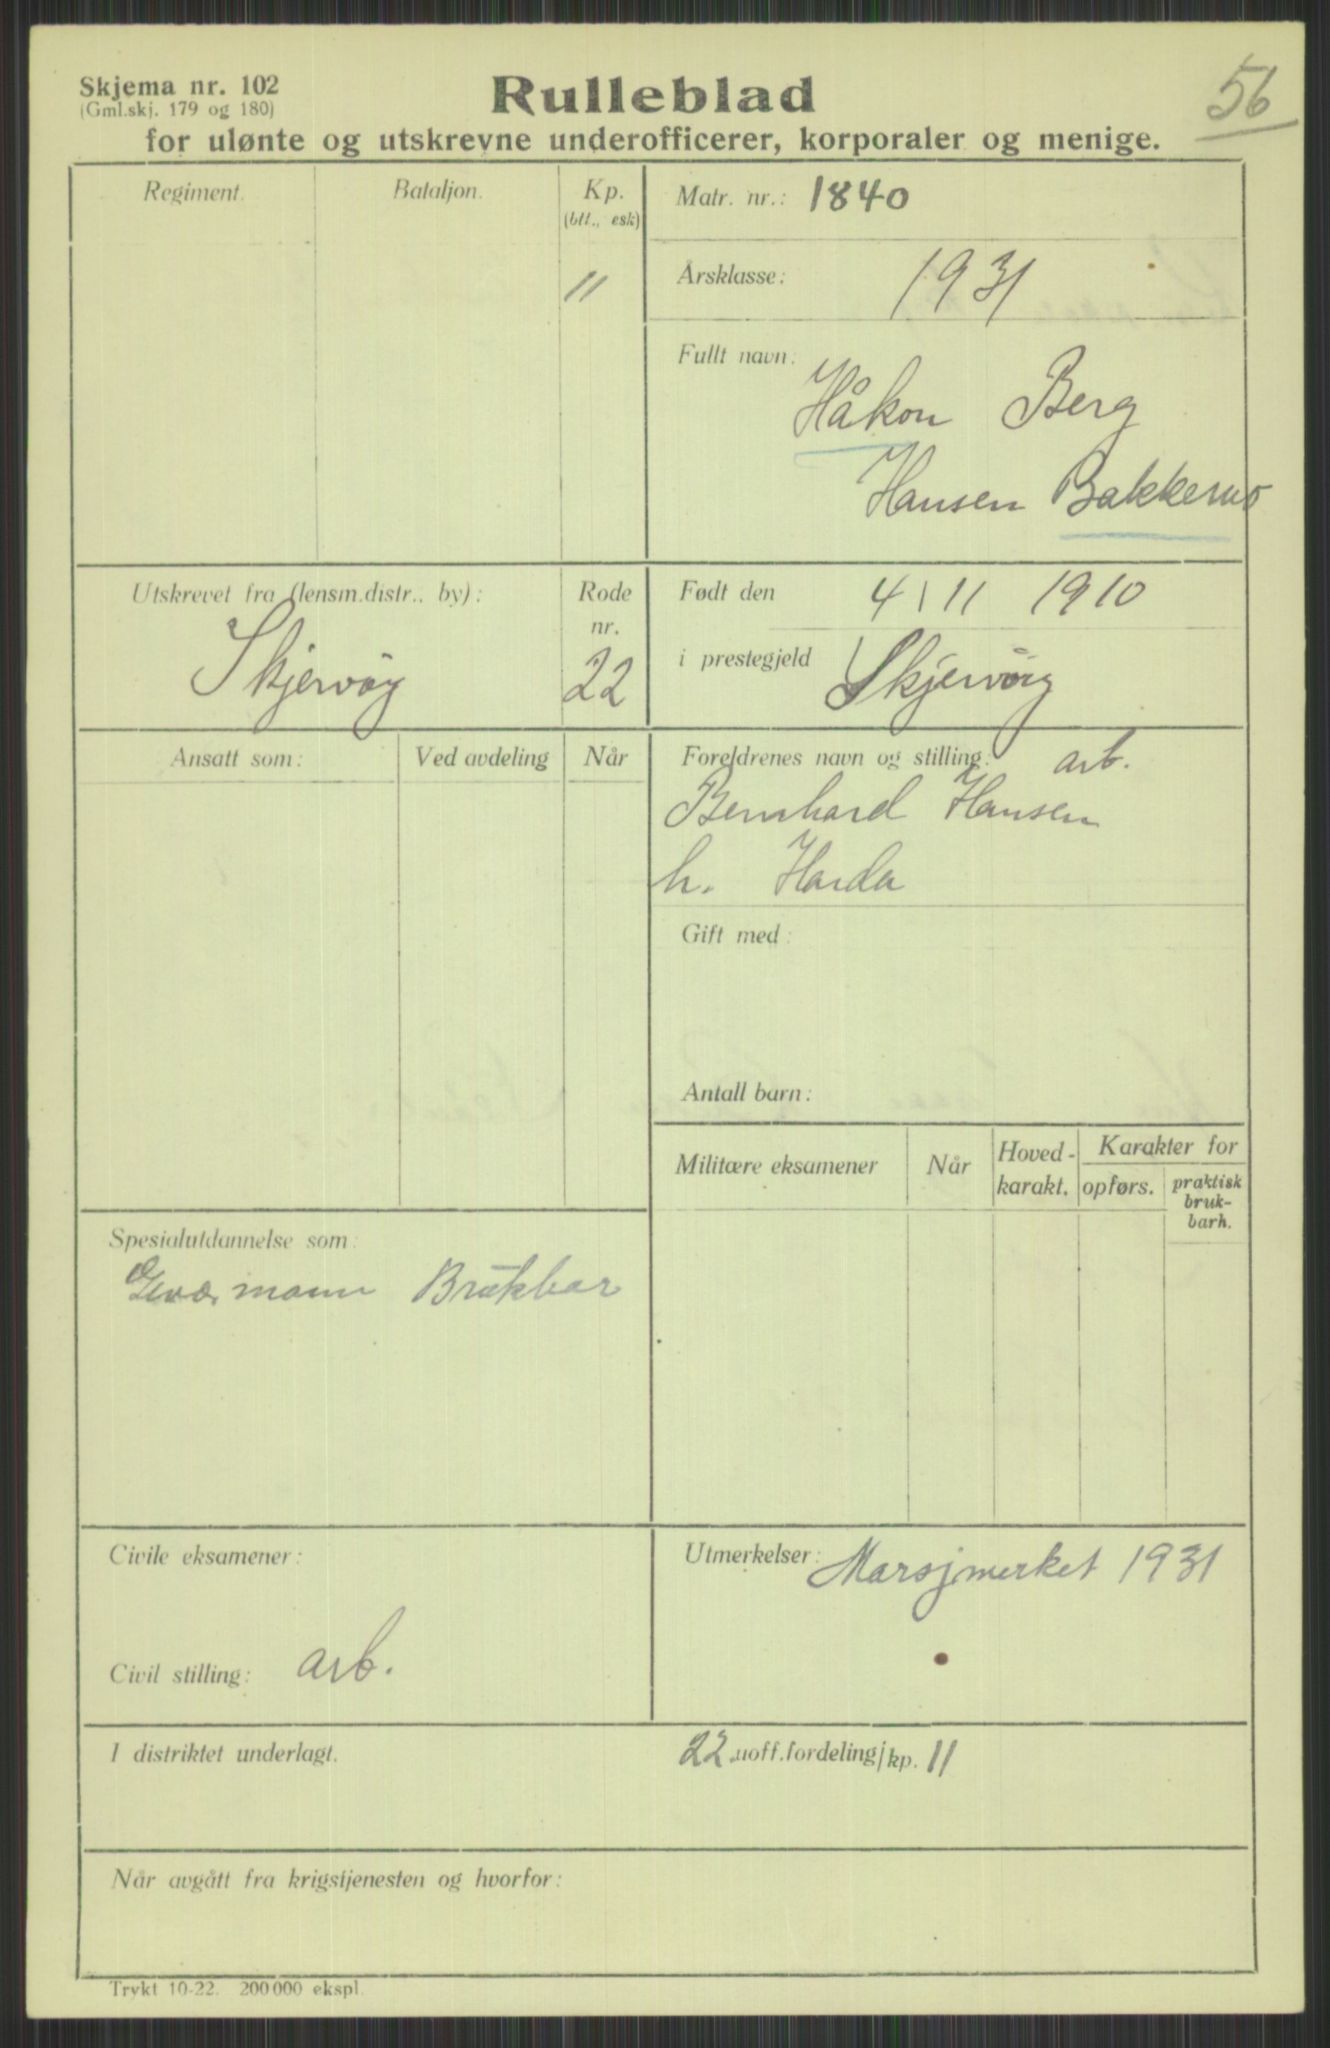 56
Skjema nr. 102
(Gml.skj. 179 og 180)
Rulleblad
for ulønte og utskrevne underofficerer, korporaler og menige.
Regiment.
Bataljon.
Kp.
(btt., esk)
11
Matr. nr.: 1840
Årsklasse: 1931
Fullt navn:
Håkon Berg
Hansen Bakkemo
Utskrevet fra (lensm.distr., by):
Skjervöy
Rode
nr.
22
Født den 4/11 1910
i prestegjeld Skjervöy
Ansatt som:
Ved avdeling
Når
Foreldrenes navn og stilling: arb.
Bernhard Hansen
h. Harda
Gift med:
Antall barn:
Militære eksamener
Når
Hoved-
karakt.
Karakter for
opførs.
praktisk
bruk-
barh.
Spesialutdannelse som:
mann Brukbar
Civile eksamener:
Civil stilling: arb.
Utmerkelser: Marsjmerket 1931
I distriktet underlagt.
22.uoff.fordeling/kp. 11
Når avgått fra krigstjenesten og hvorfor:
Trykt 10-22. 200 000 ekspl.